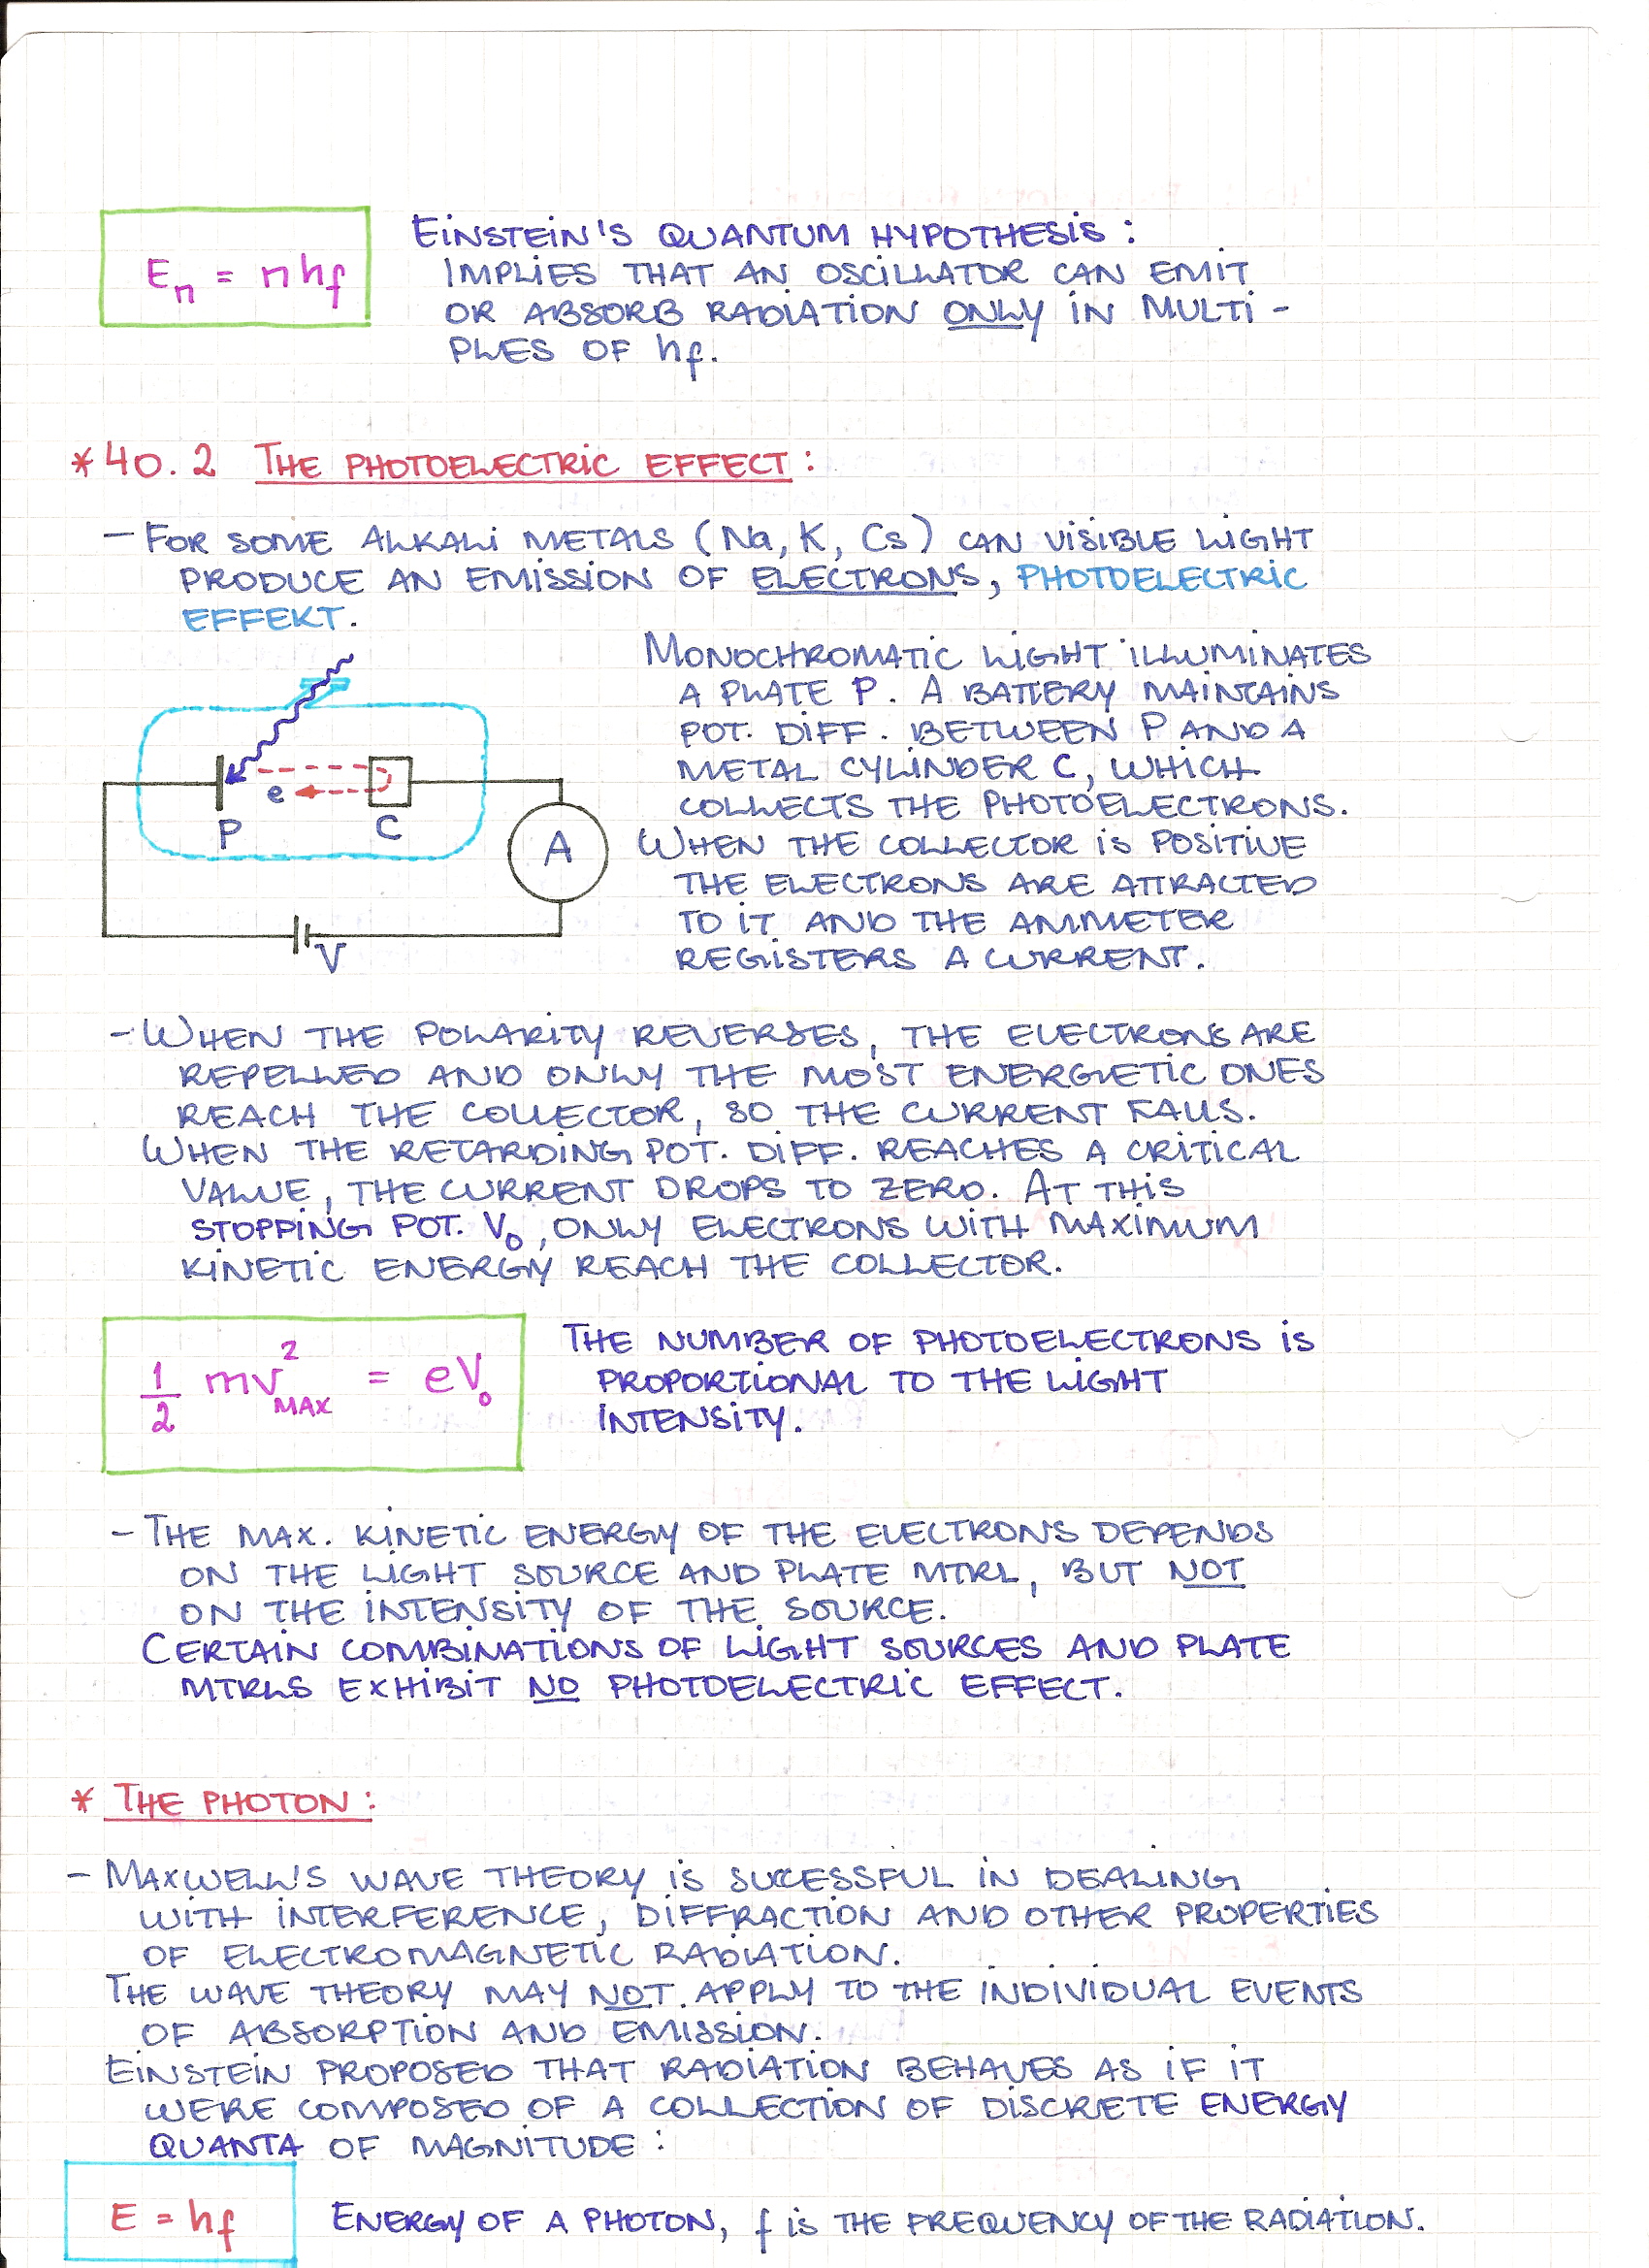 Eₙ = nhf
EINSTEIN'S QUANTUM HYPOTHESIS:
IMPLIES THAT AN OSCILLATOR CAN EMIT
OR ABSORB RADIATION ONLY IN MULTI-
PLES OF hf.
* 40.2 THE PHOTOELECTRIC EFFECT:
- FOR SOME ALKALI METALS (Na, K, Cs) CAN VISIBLE LIGHT
PRODUCE AN EMISSION OF ELECTRONS, PHOTOELECTRIC
EFFEKT.
MONOCHROMATIC LIGHT ILLUMINATES
A PLATE P. A BATTERY MAINTAINS
POT. DIFF. BETWEEN P AND A
METAL CYLINDER C, WHICH
COLLECTS THE PHOTOELECTRONS.
WHEN THE COLLECTOR IS POSITIVE
THE ELECTRONS ARE ATTRACTED
TO IT AND THE AMMETER
REGISTERS A CURRENT.
e
P
C
A
V
- WHEN THE POLARITY REVERSES, THE ELECTRONS ARE
REPELLED AND ONLY THE MOST ENERGIETIC ONES
REACH THE COLLECTOR, SO THE CURRENT FALLS.
WHEN THE RETARDING POT. DIFF. REACHES A CRITICAL
VALUE, THE CURRENT DROPS TO ZERO. AT THIS
STOPPING POT. V₀, ONLY ELECTRONS WITH MAXIMUM
KINETIC ENERGY REACH THE COLLECTOR.
1/2 mv²MAX = eV₀
THE NUMBER OF PHOTOELECTRONS IS
PROPORTIONAL TO THE LIGHT
INTENSITY.
- THE MAX. KINETIC ENERGY OF THE ELECTRONS DEPENDS
ON THE LIGHT SOURCE AND PLATE MTRL, BUT NOT
ON THE INTENSITY OF THE SOURCE.
CERTAIN COMBINATIONS OF LIGHT SOURCES AND PLATE
MTRLS EXHIBIT NO PHOTOELECTRIC EFFECT.
* THE PHOTON:
- MAXWELL'S WAVE THEORY IS SUCCESSFUL IN DEALING
WITH INTERFERENCE, DIFFRACTION AND OTHER PROPERTIES
OF ELECTROMAGNETIC RADIATION.
THE WAVE THEORY MAY NOT APPLY TO THE INDIVIDUAL EVENTS
OF ABSORPTION AND EMISSION.
EINSTEIN PROPOSED THAT RADIATION BEHAVES AS IF IT
WERE COMPOSED OF A COLLECTION OF DISCRETE ENERGY
QUANTA OF MAGNITUDE:
E = hf
ENERGY OF A PHOTON, f IS THE FREQUENCY OF THE RADIATION.